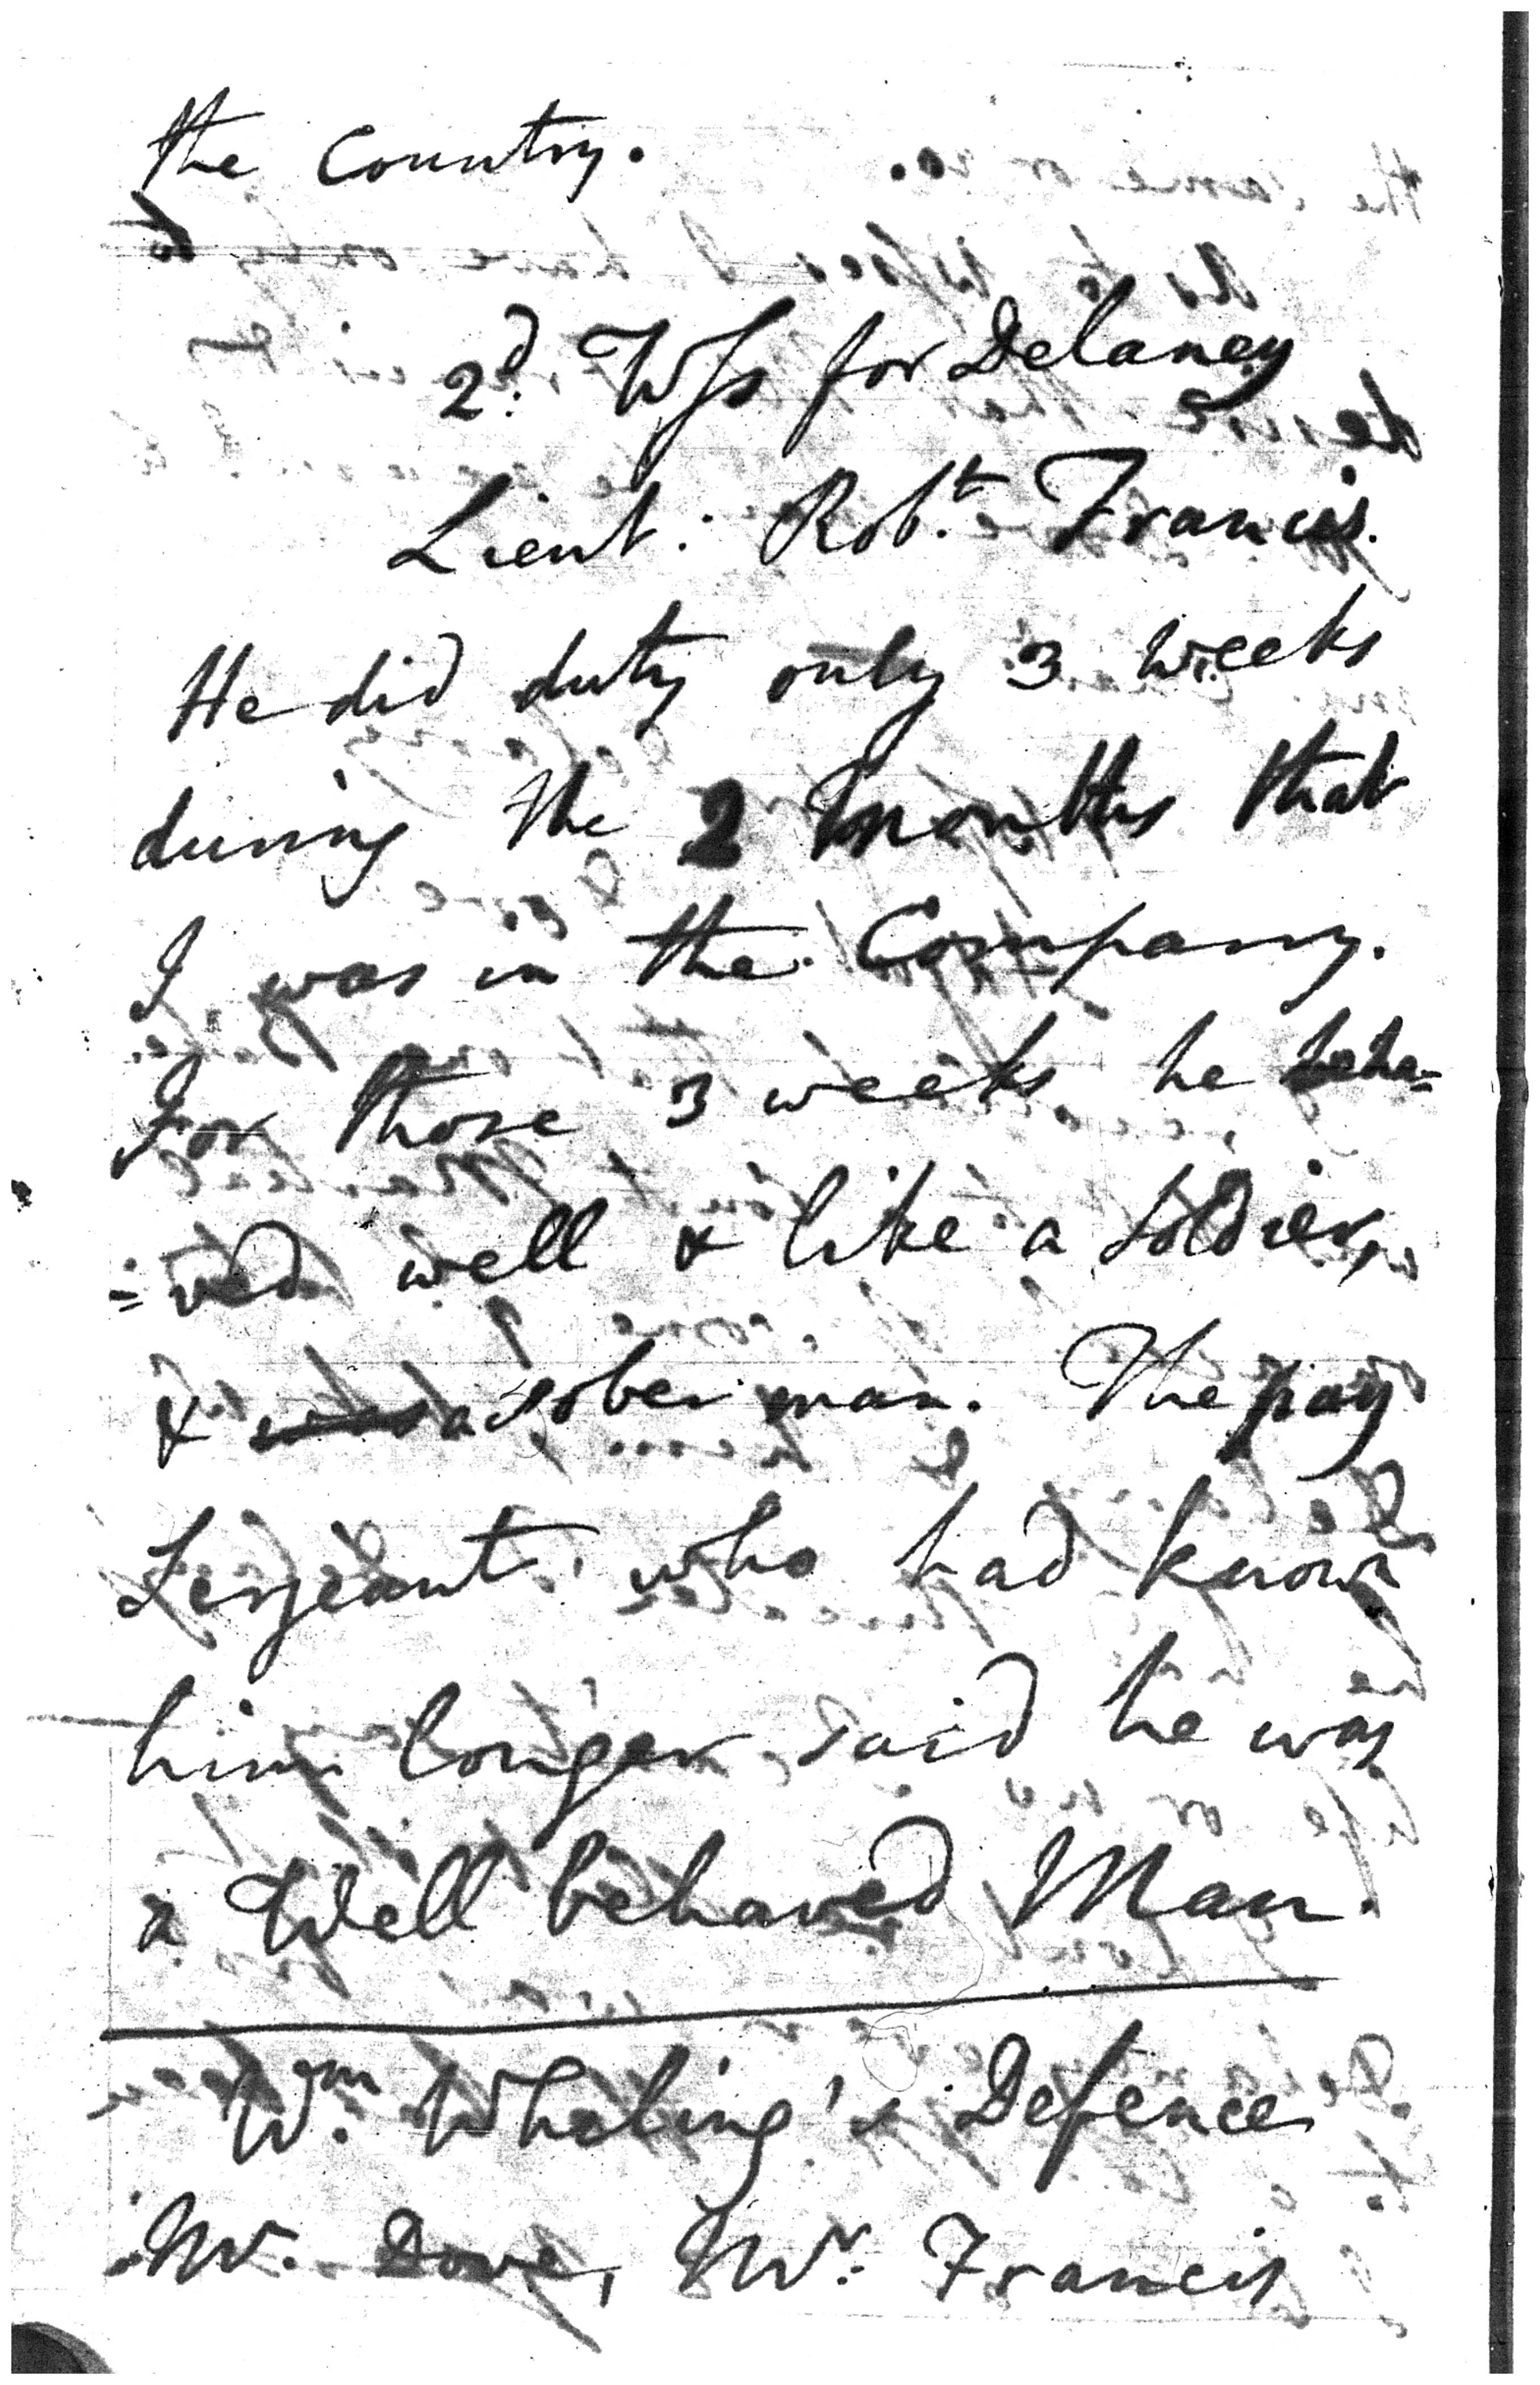 the Country.
2d. Wss for Delaney
Lieut: Robt. Francis.
He did duty only 3 weeks
during the 2 months that
I was in the Company.
For those 3 weeks he beha=
=ved well & like a soldier,
& was a sober man. The pay
Serjeant who had known
him longer said he was
a Well behaved Man.
Wm. Whaling's Defence
Mr. Dove, Mr. Francis